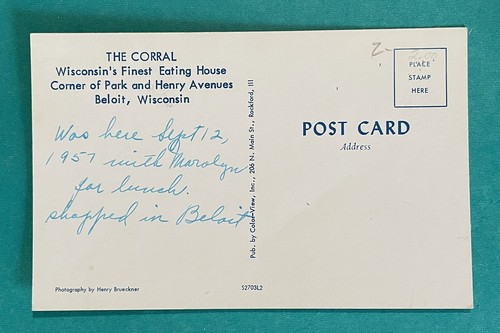 THE CORRAL
Wisconsin's Finest Eating House
Corner of Park and Henry Avenues
Beloit, Wisconsin
Was here Sept 12,
1957 with Marolyn
for lunch.
shopped in Beloit
Photography by Henry Brueckner
52703L2
Pub. by Color-View, Inc., 206 N. Main St., Rockford, Ill
2-
2.00
PLACE
STAMP
HERE
POST CARD
Address